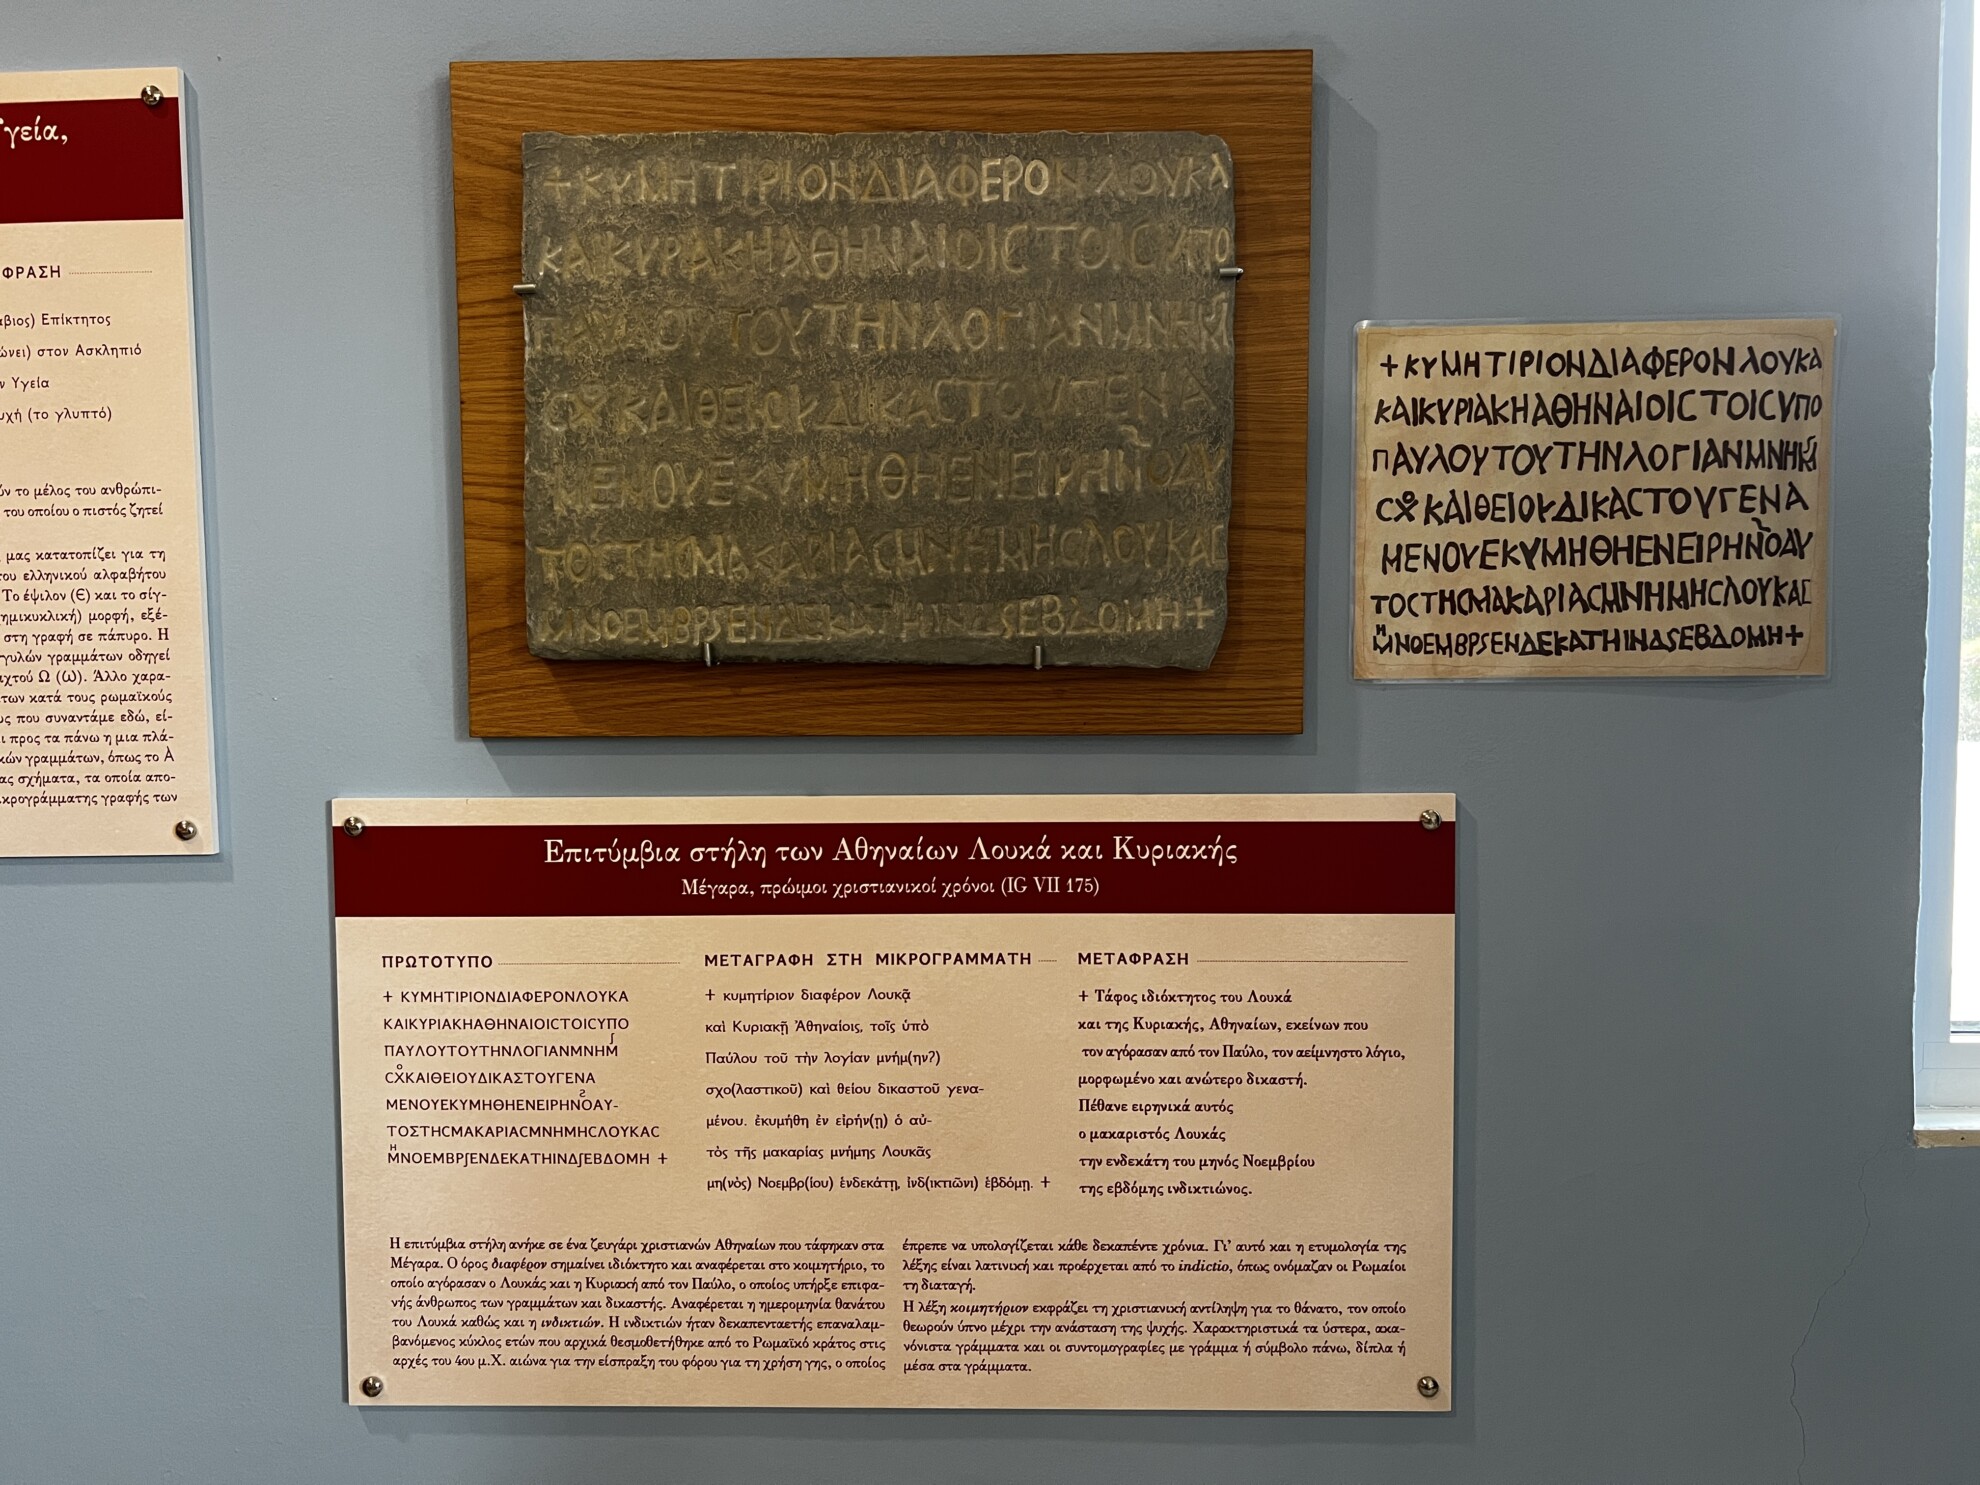 γεία,
ΦΡΑΣΗ
άβιος) Επίκτητος
ώνει) στον Ασκληπιό
ν Υγεία
υχή (το γλυπτό)
ύν το μέλος του ανθρώπι-
του οποίου ο πιστός ζητεί
μας κατατοπίζει για τη
του ελληνικού αλφαβήτου
Το έψιλον (Є) και το σίγ-
ημικυκλική) μορφή, εξέ-
στη γραφή σε πάπυρο. Η
γυλών γραμμάτων οδηγεί
ιχτού Ω (Ѡ). Άλλο χαρα-
των κατά τους ρωμαϊκούς
υς που συναντάμε εδώ, εί-
ι προς τα πάνω η μια πλά-
κών γραμμάτων, όπως το Α
ας σχήματα, τα οποία απο-
κρογράμματης γραφής των
+ΚΥΜΗΤΙΡΙΟΝΔΙΑΦΕΡΟΝΛΟΥΚΑ
ΚΑΙΚΥΡΑΚΗΑΘΗΝΑΙΟΙϹΤΟΙϹΥΠΟ
ΠΑΥΛΟΥΤΟΥΤΗΝΛΟΓΙΑΝΜΝΗΜ
ϹΧΚΑΙΘΕΙΟΥΔΙΚΑϹΤΟΥΓΕΝΑ
ΜΕΝΟΥΕΚΥΜΗΘΗΕΝΕΙΡΗΝΟΑΥ
ΤΟϹΤΗϹΜΑΚΑΡΙΑϹΜΝΗΜΗϹΛΟΥΚΑϹ
ΜΝΟΕΜΒΡʃΕΝΔΕΚΑΤΗΙΝΔʃΕΒΔΟΜΗ+
+ΚΥΜΗΤΙΡΙΟΝΔΙΑΦΕΡΟΝΛΟΥΚΑ
ΚΑΙΚΥΡΙΑΚΗΑΘΗΝΑΙΟΙϹΤΟΙϹΥΠΟ
ΠΑΥΛΟΥΤΟΥΤΗΝΛΟΓΙΑΝΜΝΗΜʃ
ϹΧοΚΑΙΘΕΙΟΥΔΙΚΑϹΤΟΥΓΕΝΑ
ΜΕΝΟΥΕΚΥΜΗΘΗΕΝΕΙΡΗΝΟΑΥ
ΤΟϹΤΗϹΜΑΚΑΡΙΑϹΜΝΗΜΗϹΛΟΥΚΑϹ
ΜΗΝΟΕΜΒΡʃΕΝΔΕΚΑΤΗΙΝΔʃΕΒΔΟΜΗ+
Επιτύμβια στήλη των Αθηναίων Λουκά και Κυριακής
Μέγαρα, πρώιμοι χριστιανικοί χρόνοι (IG VII 175)
ΠΡΩΤΟΤΥΠΟ
+ ΚΥΜΗΤΙΡΙΟΝΔΙΑΦΕΡΟΝΛΟΥΚΑ
ΚΑΙΚΥΡΙΑΚΗΑΘΗΝΑΙΟΙϹΤΟΙϹΥΠΟ
ΠΑΥΛΟΥΤΟΥΤΗΝΛΟΓΙΑΝΜΝΗΜʃ
ϹΧοΚΑΙΘΕΙΟΥΔΙΚΑΣΤΟΥΓΕΝΑ
ΜΕΝΟΥΕΚΥΜΗΘΗΕΝΕΙΡΗΝΟΑΥ-
ΤΟΣΤΗϹΜΑΚΑΡΙΑϹΜΝΗΜΗϹΛΟΥΚΑϹ
ΜΗΝΟΕΜΒΡʃΕΝΔΕΚΑΤΗΙΝΔʃΕΒΔΟΜΗ +
ΜΕΤΑΓΡΑΦΗ ΣΤΗ ΜΙΚΡΟΓΡΑΜΜΑΤΗ
+ κυμητίριον διαφέρον Λουκᾷ
καὶ Κυριακῇ Ἀθηναίοις, τοῖς ὑπὸ
Παύλου τοῦ τὴν λογίαν μνήμ(ην?)
σχο(λαστικοῦ) καὶ θείου δικαστοῦ γενα-
μένου. ἐκυμήθη ἐν εἰρήν(ῃ) ὁ αὐ-
τὸς τῆς μακαρίας μνήμης Λουκᾶς
μη(νὸς) Νοεμβρ(ίου) ἑνδεκάτῃ, ἰνδ(ικτιῶνι) ἑβδόμῃ. +
ΜΕΤΑΦΡΑΣΗ
+ Τάφος ιδιόκτητος του Λουκά
και της Κυριακής, Αθηναίων, εκείνων που
τον αγόρασαν από τον Παύλο, τον αείμνηστο λόγιο,
μορφωμένο και ανώτερο δικαστή.
Πέθανε ειρηνικά αυτός
ο μακαριστός Λουκάς
την ενδεκάτη του μηνός Νοεμβρίου
της εβδόμης ινδικτιώνος.
Η επιτύμβια στήλη ανήκε σε ένα ζευγάρι χριστιανών Αθηναίων που τάφηκαν στα
Μέγαρα. Ο όρος διαφέρον σημαίνει ιδιόκτητο και αναφέρεται στο κοιμητήριο, το
οποίο αγόρασαν ο Λουκάς και η Κυριακή από τον Παύλο, ο οποίος υπήρξε επιφα-
νής άνθρωπος των γραμμάτων και δικαστής. Αναφέρεται η ημερομηνία θανάτου
του Λουκά καθώς και η ινδικτιών. Η ινδικτιών ήταν δεκαπενταετής επαναλαμ-
βανόμενος κύκλος ετών που αρχικά θεσμοθετήθηκε από το Ρωμαϊκό κράτος στις
αρχές του 4ου μ.Χ. αιώνα για την είσπραξη του φόρου για τη χρήση γης, ο οποίος
έπρεπε να υπολογίζεται κάθε δεκαπέντε χρόνια. Γι' αυτό και η ετυμολογία της
λέξης είναι λατινική και προέρχεται από το indictio, όπως ονόμαζαν οι Ρωμαίοι
τη διαταγή.
Η λέξη κοιμητήριον εκφράζει τη χριστιανική αντίληψη για το θάνατο, τον οποίο
θεωρούν ύπνο μέχρι την ανάσταση της ψυχής. Χαρακτηριστικά τα ύστερα, ακα-
νόνιστα γράμματα και οι συντομογραφίες με γράμμα ή σύμβολο πάνω, δίπλα ή
μέσα στα γράμματα.